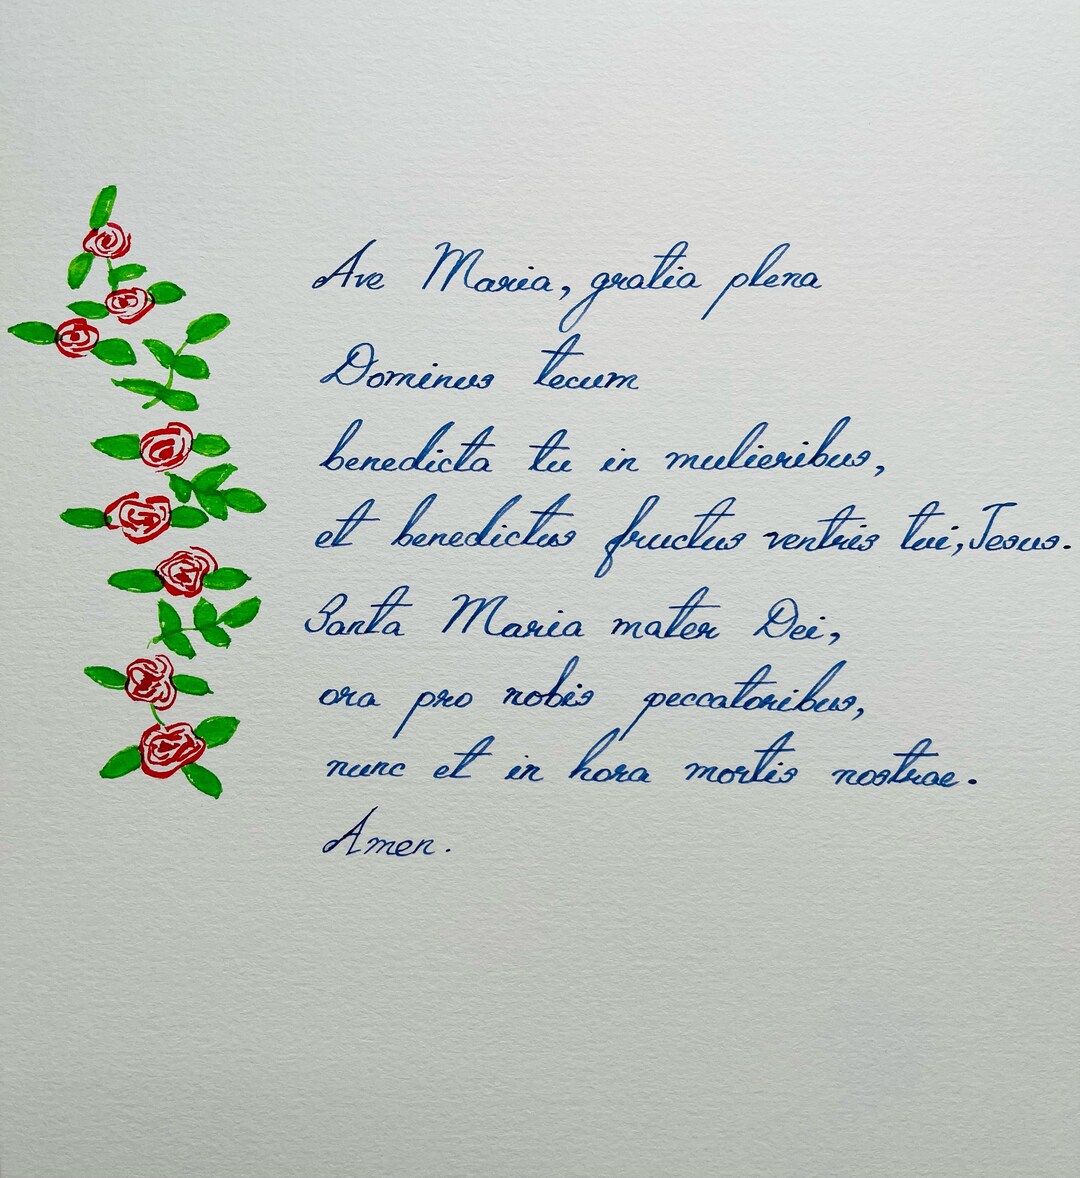 Ave Maria, gratia plena
Dominus tecum
benedicta tu in mulieribus,
et benedictus fructus ventris tui, Jesus.
Santa Maria mater Dei,
ora pro nobis peccatoribus,
nunc et in hora mortis nostrae.
Amen.